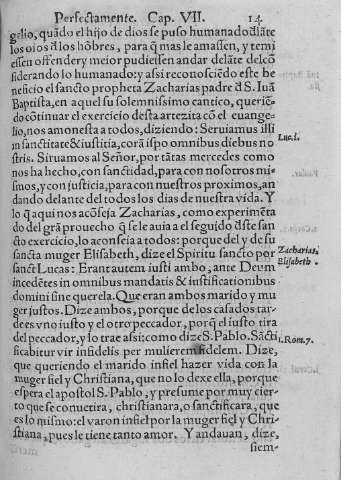 Perfectamente. Cap. VII. 14.
gelio, quãdo el hijo de dios se puso humanado dlãte
los ojos d̃ los hõbres, para q̃ mas le amassen, y temi
essen offender y mejor pudiessen andar delãte del cõ
siderando lo humanado: y assi reconosciẽdo este be
neficio el sancto propheta Zacharias padre d̃ S. Iuã
Baptista, en aquel su solemnissimo cantico, queriẽ-
do cõtinuar el exercicio desta artezita cõ el euange-
lio, nos amonesta a todos, diziendo: Seruiamus illi
in sanctitate & iustitia, corã ipso omnibus diebus no
stris. Siruamos al Señor, por tãtas mercedes como
nos ha hecho, con sanctidad, para con nosotros mis-
mos, y con justicia, para con nuestros proximos, an
dando delante del todos los dias de nuestra vida. Y
lo q̃ aqui nos acõseja Zacharias, como experimẽta
do del grã prouecho q̃ se le auia a el seguido d̃ste san
cto exercicio, lo aconseja a todos: porque del y de su
sancta muger Elisabeth, dize el Spiritu sancto por
sanct Lucas: Erant autem iusti ambo, ante Deum
incedẽtes in omnibus mandatis & iustificationibus
domini sine querela. Que eran ambos marido y mu
ger justos. Dize ambos, porque de los casados tar-
des vno justo y el otro peccador, porq̃ el justo tira
del peccador, y lo trae assi: como dize S. Pablo. Sãcti
ficabitur vir infidelis per mulierem fidelem. Dize,
que queriendo el marido infiel hazer vida con la
muger fiel y Christiana, que no lo dexe ella, porque
espera el apostol S. Pablo, y presume por muy cier-
to que se conuertira, christianara, o sanctificara, que
es lo mismo: el varon infiel por la muger fiel y Chri-
stiana, pues le tiene tanto amor. Y andauan, dize,
siem-
Luc. 1.
Zacharias,
Elisabeth.
1. Rom. 7.